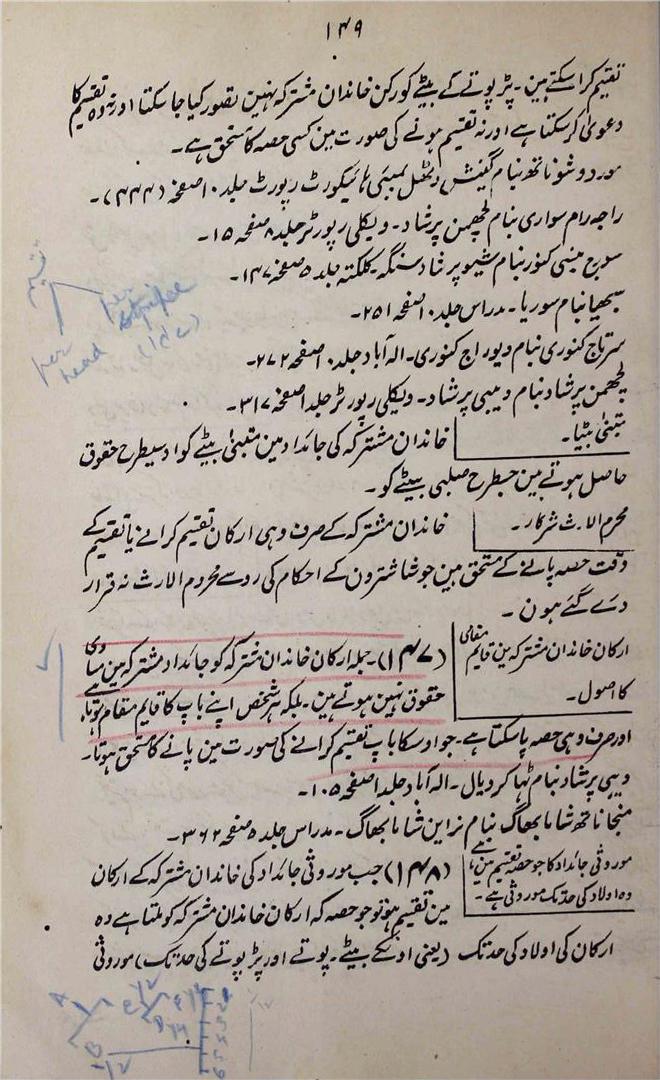 ۱۴۹
تقسیم کراسکتے ہین۔ پڑپوتے کے بیٹے کو رکن خاندان مشترکہ نہین تصور کیا جاسکتا اور نہ وہ تقسیم کا
دعویٰ کرسکتا ہے اور نہ تقسیم ہونے کی صورت مین کسی حصہ کا مستحق ہے۔
مورو وشوناتھ بنام گنیش وٹھل بمبئی ہائیکورٹ رپورٹ جلد ۱۰ صفحہ (۴۴۴)۔
راجہ رام سواری بنام لچھمن پرشاد۔ ویکلی رپورٹر جلد ۸ صفحہ ۱۵۔
سورج بنسی کنور بنام شیو پرشاد سنگہ۔ کلکتہ جلد ۵ صفحہ ۱۴۷۔
سبھیا بنام سوریا۔ مدراس جلد ۱۰ صفحہ ۲۵۱۔
سرتاج کنوری بنام دیوراج کنوری۔ الہ آباد جلد ۱۰ صفحہ ۲۷۲۔
لچھمن پرشاد بنام دیبی پرشاد۔ ویکلی رپورٹر جلد ۱ صفحہ ۳۱۷۔
متبنیٰ بیٹا۔
خاندان مشترکہ کی جائداد مین متبنیٰ بیٹے کو اوسیطرح حقوق
حاصل ہوتے ہین جسطرح صلبی بیٹے کو۔
محروم الارث شرکار۔
خاندان مشترکہ کے صرف وہی ارکان تقسیم کرانے یا تقسیم کے
وقت حصہ پانے کے مستحق ہین جو شاشترون کے احکام کی رو سے محروم الارث نہ قرار
دئے گئے ہون۔
ارکان خاندان مشترکہ مین قایم مقامی
کا اصول۔
(۱۴۷)۔ جملہ ارکان خاندان مشترکہ کو جائداد مشترکہ مین مساوی
حقوق نہین ہوتے ہین۔ بلکہ ہر شخص اپنے باپ کا قایم مقام ہوتا ہے
اور صرف وہی حصہ پاسکتا ہے۔ جو اوسکا باپ تقسیم کرانے کی صورت مین پانے کا مستحق ہوتا۔
دیبی پرشاد بنام ٹھاکر دیال۔ الہ آباد جلد ۱ صفحہ ۱۰۵۔
منجاناتھ شانابھاگ بنام نراین شانابھاگ۔ مدراس جلد ۵ صفحہ ۳۶۲۔
موروثی جائداد کا جو حصہ تقسیم مین ملے
وہ اولاد کی حد تک موروثی ہے۔
(۱۴۸) جب موروثی جائداد کی خاندان مشترکہ کے ارکان
مین تقسیم ہو تو جو حصہ کہ ارکان خاندان مشترکہ کو ملتا ہے وہ
ارکان کی اولاد کی حد تک (یعنی اونکے بیٹے۔ پوتے اور پڑپوتے کی حد تک) موروثی
تقسیم
per
head
per